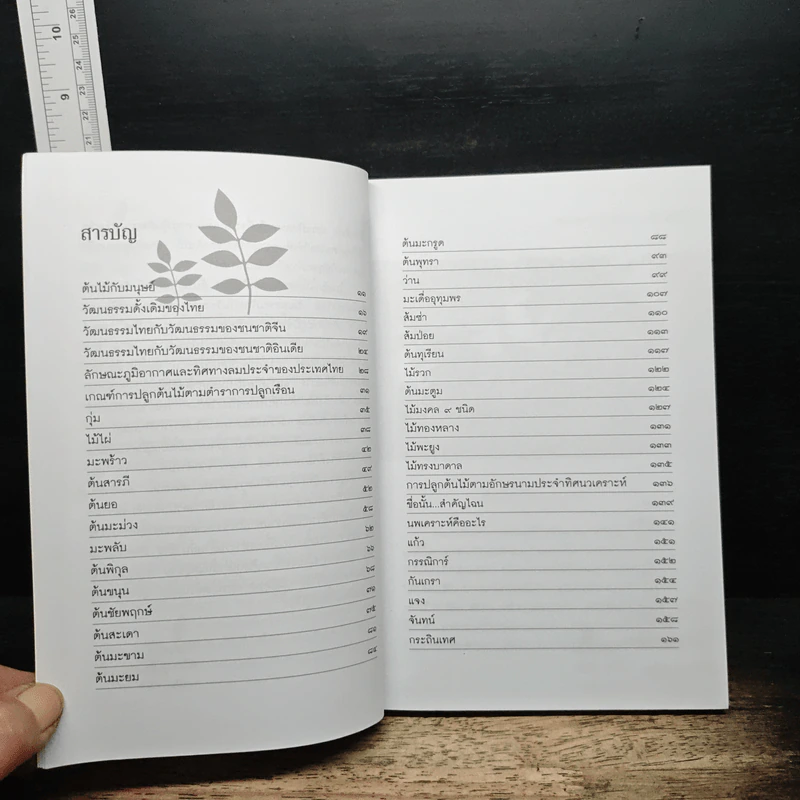 10
9
26
25
24
23
22
21
สารบัญ
ต้นไม้กับมนุษย์ ๑๑
วัฒนธรรมดั้งเดิมของไทย ๑๖
วัฒนธรรมไทยกับวัฒนธรรมของชนชาติจีน ๑๙
วัฒนธรรมไทยกับวัฒนธรรมของชนชาติอินเดีย ๒๕
ลักษณะภูมิอากาศและทิศทางลมประจำของประเทศไทย ๒๘
เกณฑ์การปลูกต้นไม้ตามตำราการปลูกเรือน ๓๑
กุ่ม ๓๕
ไม้ไผ่ ๓๘
มะพร้าว ๔๒
ต้นสารภี ๔๙
ต้นยอ ๕๒
ต้นมะม่วง ๕๘
มะพลับ ๖๒
ต้นพิกุล ๖๖
ต้นขนุน ๖๘
ต้นชัยพฤกษ์ ๗๑
ต้นสะเดา ๗๕
ต้นมะขาม ๘๑
ต้นมะยม ๘๔
ต้นมะกรูด ๘๘
ต้นพุทรา ๙๓
ว่าน ๙๙
มะเดื่ออุทุมพร ๑๐๗
ส้มซ่า ๑๑๐
ส้มป่อย ๑๑๓
ต้นทุเรียน ๑๑๗
ไม้รวก ๑๒๒
ต้นมะตูม ๑๒๔
ไม้มงคล ๙ ชนิด ๑๒๗
ไม้ทองหลาง ๑๓๑
ไม้พะยูง ๑๓๓
ไม้ทรงบาดาล ๑๓๕
การปลูกต้นไม้ตามอักษรนามประจำทิศนวเคราะห์ ๑๓๖
ชื่อนั้น...สำคัญไฉน ๑๓๙
นพเคราะห์คืออะไร ๑๔๑
แก้ว ๑๕๑
กรรณิการ์ ๑๕๒
กันเกรา ๑๕๔
แจง ๑๕๗
จันทน์ ๑๕๘
กระถินเทศ ๑๖๑